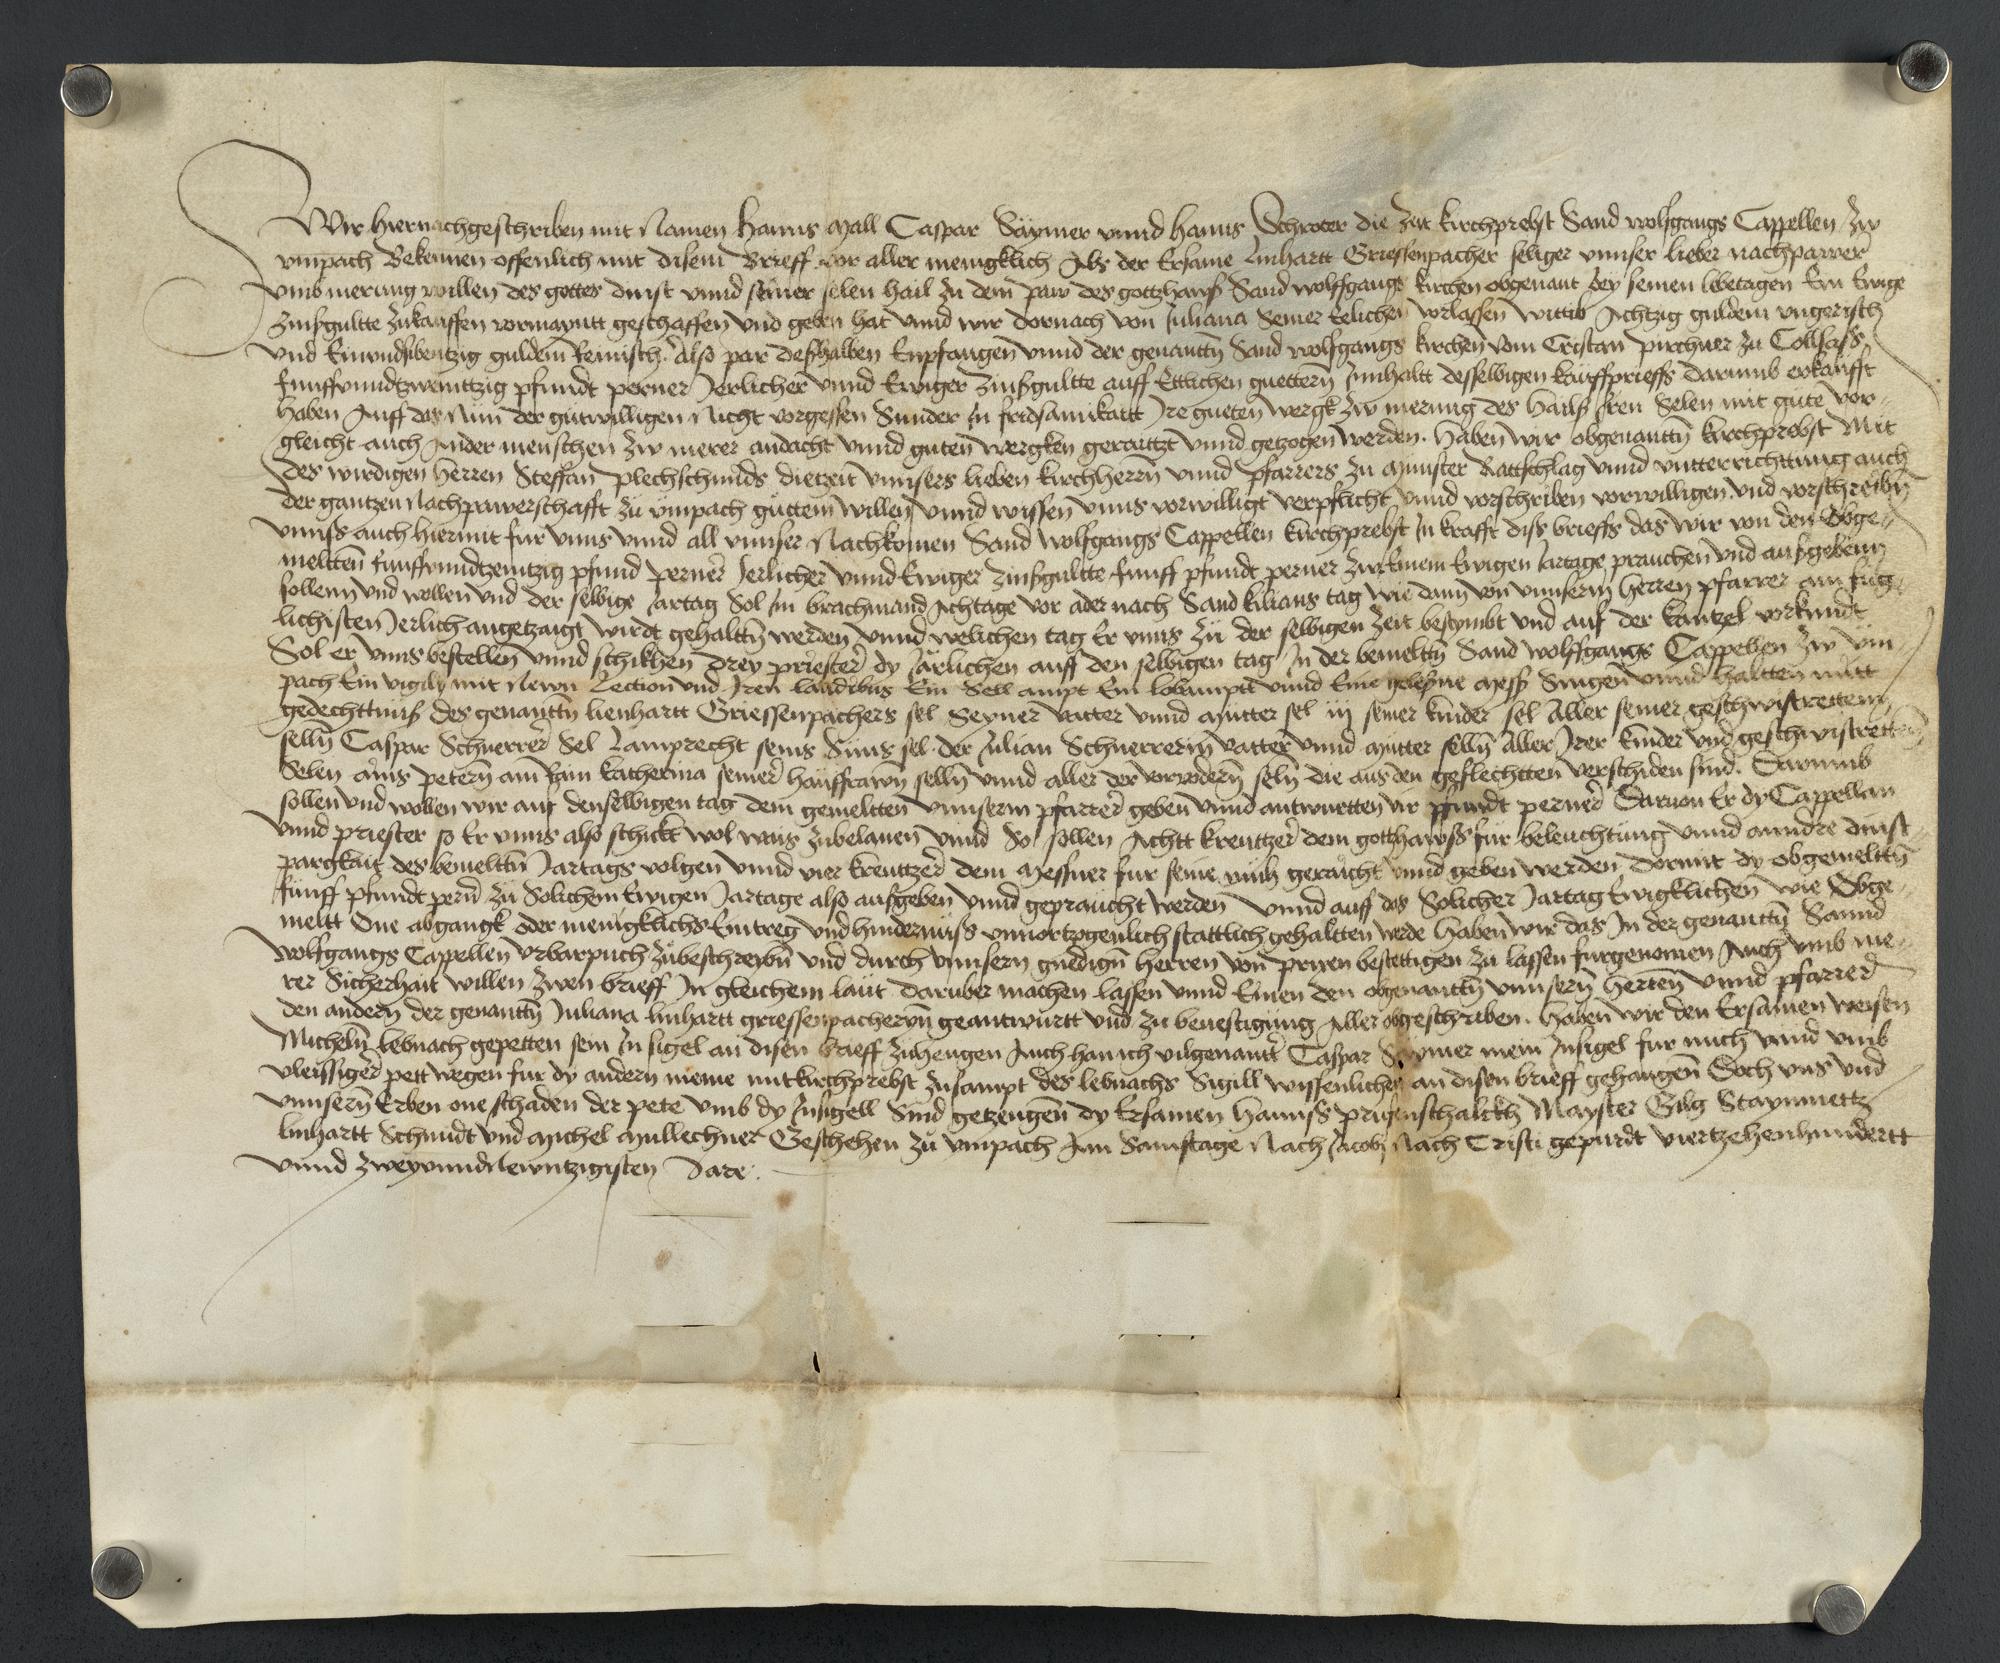 Wir hiernachgeschriben mit Namen Hanns Mall Caspar Säymer vnnd Hanns Schroter die zeit kirchprebst Sand wolfgangs Cappellen zw
vmpach Bekennen offenlich mit disem Brieff vor aller menigklich Als der Ersame Linhartt Griessenpacher seliger vnnser lieber nachpawer
vmb merung willen des gottes dinst vnnd seiner selen hail zu dem paw des gotzhawß Sand wolffgangs kirchen obgenant bey seinen lebetagen Ein Ewige
zinßgultte zukauffen vormayntt geschaffen vnd geben hat vnnd wir dornach von Juliana Seiner Eelichen vorlassen wittib Achtzig guldein vngerisch
vnd Einvndsibentzig guldein Reinisch Also par deßhalben Enpfangen vnnd der genanttn Sand wolfgangs kirchen vom Cristan pirchner zu Collsass
funffvnndtzwenntzig pfundt perner Jerlicher vnnd Ewiger zinßgultte auff Ettlichen guettern Jnnhaltt desselbigen kauffprieffs darumb erkaufft
haben Auff das Nun der gutwilligen Nicht vorgessen Sunder Jn fridsamikaitt Jre gueten wergk zw merung des hails Jren Selen mit gute vor-
gleicht auch Ander menschen zw merer andacht vnnd guten wergken geraitzt vnnd getzogen werden. Haben wir obgenanttn kirchprobst Mit
des wirdigen herren Steffan plechschmids dietzeit vnnsers lieben kirchherrn vnnd pfarrers zu Munster Rattschlag vnnd vntterrichttung auch
der gantzen Nachpawerschafft zu vmpach guttem willen vnnd wissen vnns vorwilligt verpflicht vnnd vorschriben vorwilligen vnd vorschreibn
vnnß auch hiermit fur vnns vnnd all vnnser Nachkomen Sand Wolfgangs Cappellen kirchprebst Jn krafft diss brieffs das wir von den Obge-
meltten funffvnndtzentzig pfund perner Jerlicher vnnd Ewiger zinßgultte funff pfundt perner zw Einem Ewigen Jartage prauchen vnd außgeben
sollenn vnd wellen vnd der selbige Jartag Sol Jm brachmand Achtage vor ader nach Sand kilians tag wie dann von vnnserm herren pfarrer am fug-
lichisten Jerlich angetzaigt wirdt gehalttn werden vnnd welichen tag Er vnns zu der selbigen zeit bestymbt vnd auf der kantzel vorkundt
Sol er vnns bestellen vnnd schikhen Drey priester dy Järlichen auff den selbigen tag Jn der bemelttn Sand wolffgangs Cappellen zw vm-
pach Ein vigily mit Newn Lection vnd Jren laudibus Ein Sell ampt Ein lobamptt vnnd Eine gelesyne Mess Singen vnnd haltten mitt
gedechttnuß des genanttn lienhartt Griessenpachers sel Seyner vatter vnnd Mutter sel iij seiner kinder sel Aller seiner geschwistrettenn
selln Caspar Schnerrer Sel Lamprecht seins Suns sel der Julian Schnerrerin vatter vnnd Mutter selln Aller Jrer kinder vnd geschwistretten
Selen ains petern am Rain katherina seiner haußfrawn selln vnnd aller der vorvodern seln die aus den geslechtten verschiden sind. Darumb
sollen vnd wollen wir auf denselbigen tag dem gemeltten vnnserm pfarrer geben vnnd antwurtten vir pfundt perner Daruon Er dy Cappellan
vnnd priester so Er vnns also schickt wol wais zubelanen vnnd So sollen Achtt kreutzer dem gotthawß fur beleuchtung vnnd anndre dinst-
pargkait des bemelttn Jartags volgen vnnd vier kreutzer dem Messner fur seine muh geraicht vnnd geben werden Domit dy obgemelttn
funff pfundt pern zu Solichem Ewigen Jartage also außgeben vnnd gepraucht werden vnnd auff das Solicher Jartag Ewigklichen wie Obge-
meltt One abgangk oder menigklichs Eintreg vnd hindernuß vnuortzogenlich stattlich gehaltten werde Haben wir das Jn der genanttn Sannd
Wolfgangs Cappellen vrbarpuch zubeschreibn vnd durch vnnsern gnedign herren von prixen bestettigen zu lassen furgenomen Auch vmb me-
rer Sicherhait willen zwen brieff Jn gleichem laut daruber machen lassen vnnd Einen den obgenanttn vnnsern herren vnnd pfarrer
den andern der genanttn Juliana linhartt griessenpacheryn geantwurtt vnd zu beuestigung Aller obgeschriben. Haben wir den Ersamen weisen
Micheln lebnach gepetten sein Jn sigel an disen brieff zuhengen Auch han ich vilgenanter Caspar Säymer mein Jnsigel fur mich vnnd vmb
vleissiger pett wegen fur dy andern meine mitkirchprebst zusampt des lebnachs Sigill wissenlichen an disen brieff gehangen Doch vns vnd
vnnsern Erben one schaden der pete vmb dy Jnsigell Sind getzeugen dy Ersamen Hannß prugenschalckh Mayster Gilg Staynmetz
linhartt Schmidt vnd Michel Mullechner Geschehen zu vmpach Am Samstage Nach Jacobj Nach Cristi gepurdt viertzehenhundertt
vnnd zweyvnndNewntzigisten Jare.